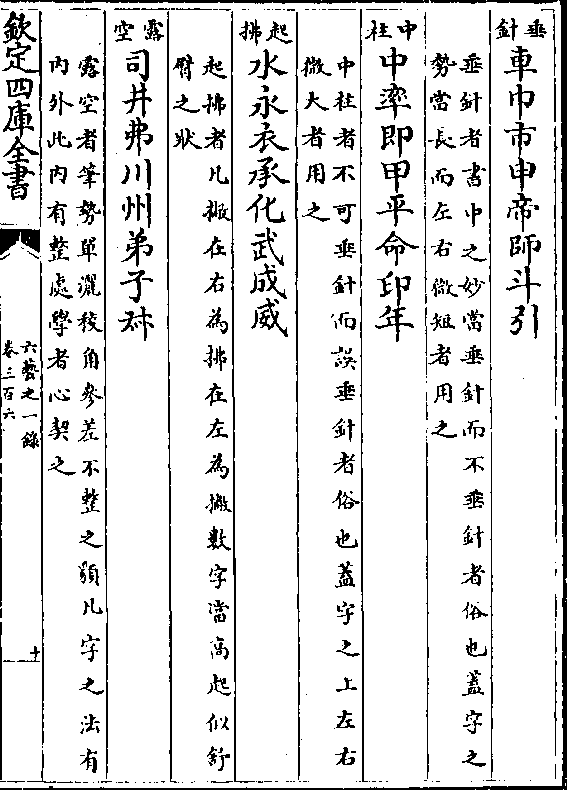 垂針
車巾市申帝師斗引
垂針者書中之妙當垂針而不垂針者俗也蓋字之
勢當長而左右微短者用之
中柱
中率即甲平命印年
中柱者不可垂針而誤垂針者俗也蓋字之上左右
微大者用之
起拂
水永衣承化武成威
起拂者凡撇在右為拂在左為撇數字當高起似舒
臂之狀
露空
司井弗川州弟子
露空者筆勢單灑稜角參差不整之類凡字之法有
內外此內有整處學者心契之
欽定四庫全書
六藝之一錄
卷三百六
十